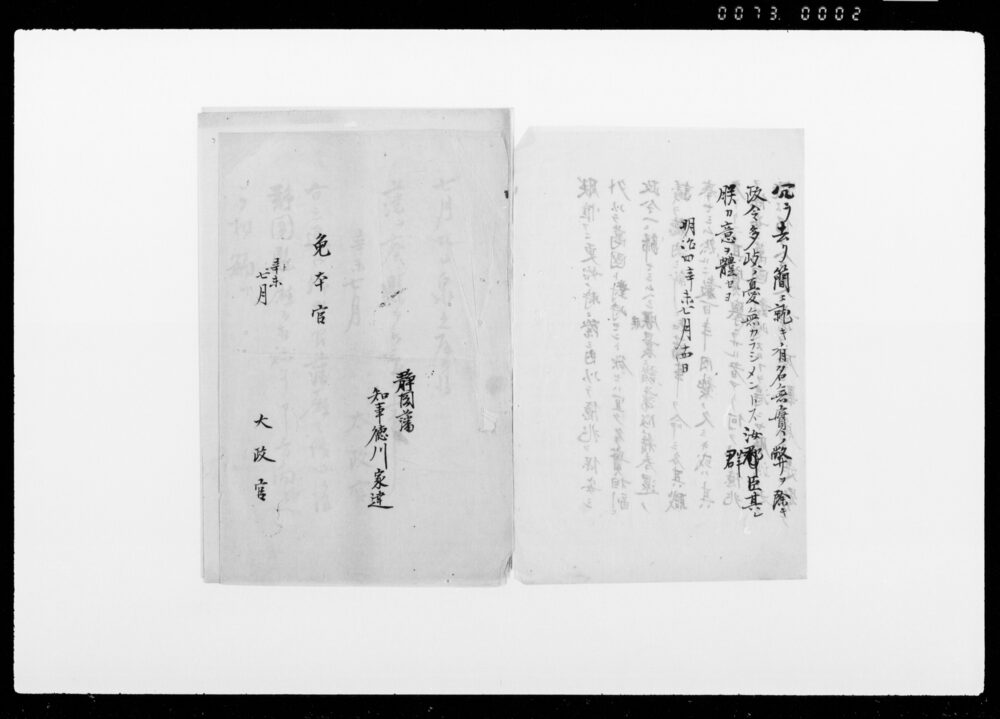 0073. 0002
冗ヲ去リ簡ニ就キ有名無實ノ弊ヲ除キ
政令多岐ノ憂無カラシメントス汝郡臣其レ
群
朕カ意ヲ體セヨ
明治四年未七月十四日
静岡藩
知事徳川家達
免本官
辛未
七月
太政官